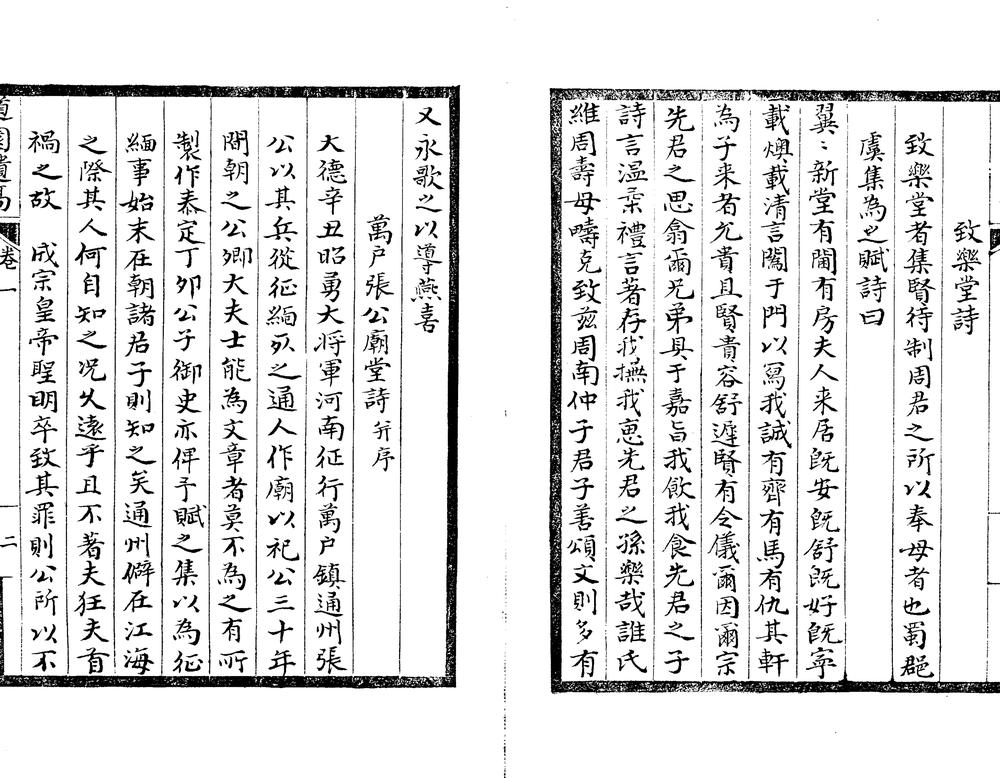 致樂堂詩
致樂堂者集賢待制周君之所以奉母者也蜀郡
虞集為之賦詩曰
翼〻新堂有閫有房夫人来居旣安旣舒旣好旣寧
載燠載清言闔于門以寫我誠有齊有馬有仇其軒
為子来者允貴且賢貴容舒遲賢有令儀爾因爾宗
先君之思翕爾兄弟具于嘉旨我飲我食先君之子
詩言温柔禮言著存我撫我恵先君之孫樂哉誰氏
維周壽母疇克致兹周南仲子君子善頌文則多有
又永歌之以導燕喜
萬户張公廟堂詩并序
大德辛丑昭勇大将軍河南征行萬户鎮通州張
公以其兵從征緬死之通人作廟以祀公三十年
間朝之公卿大夫士能為文章者莫不為之有所
製作泰定丁卯公子御史亦俾予賦之集以為征
緬事始末在朝諸君子則知之矣通州僻在江海
之際其人何自知之况久遠乎且不著夫狂夫首
禍之故　成宗皇帝聖明卒致其罪則公所以不
道園遺稿
卷一
二